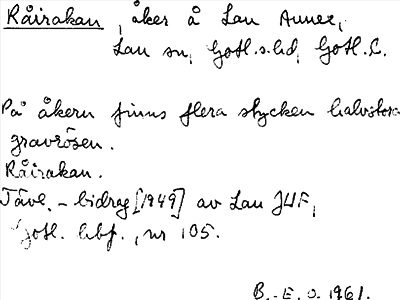 Råirakan, åker å Lau Annex,
Lau sn, Gotl.s. hd, Gotl. C.
På åkern finns flera stycken halvstora
gravrösen.
Råirakan.
Tävl.-bidrag [1949] av Lau JUF,
Gotl. lbf., nr 105.
B.-E. O. 1961.